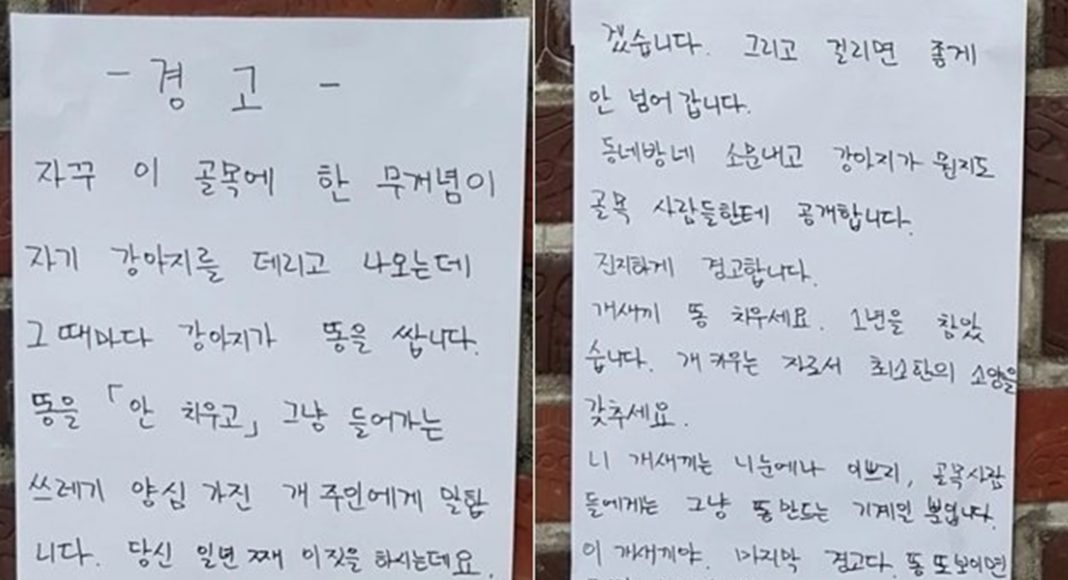 - 경 고 -
자꾸 이 골목에 한 무개념이
자기 강아지를 데리고 나오는데
그때마다 강아지가 똥을 쌉니다.
똥을 「안 치우고」 그냥 들어가는
쓰레기 양심 가진 개 주인에게 말합
니다. 당신 일년 째 이짓을 하시는데요.
겠습니다. 그리고 걸리면 좋게
안 넘어 갑니다.
동네방네 소문내고 강아지가 뭔지도
골목 사람들한테 공개합니다.
진지하게 경고합니다.
개새끼 똥 치우세요. 1년을 참았
습니다. 개 키우는 자로서 최소한의 소양을
갖추세요.
니 개새끼는 니눈에나 이쁘지, 골목사람
들에게는 그냥 똥 만드는 기계일 뿐입니다.
이 개새끼야. 마지막 경고다. 똥 또보이면